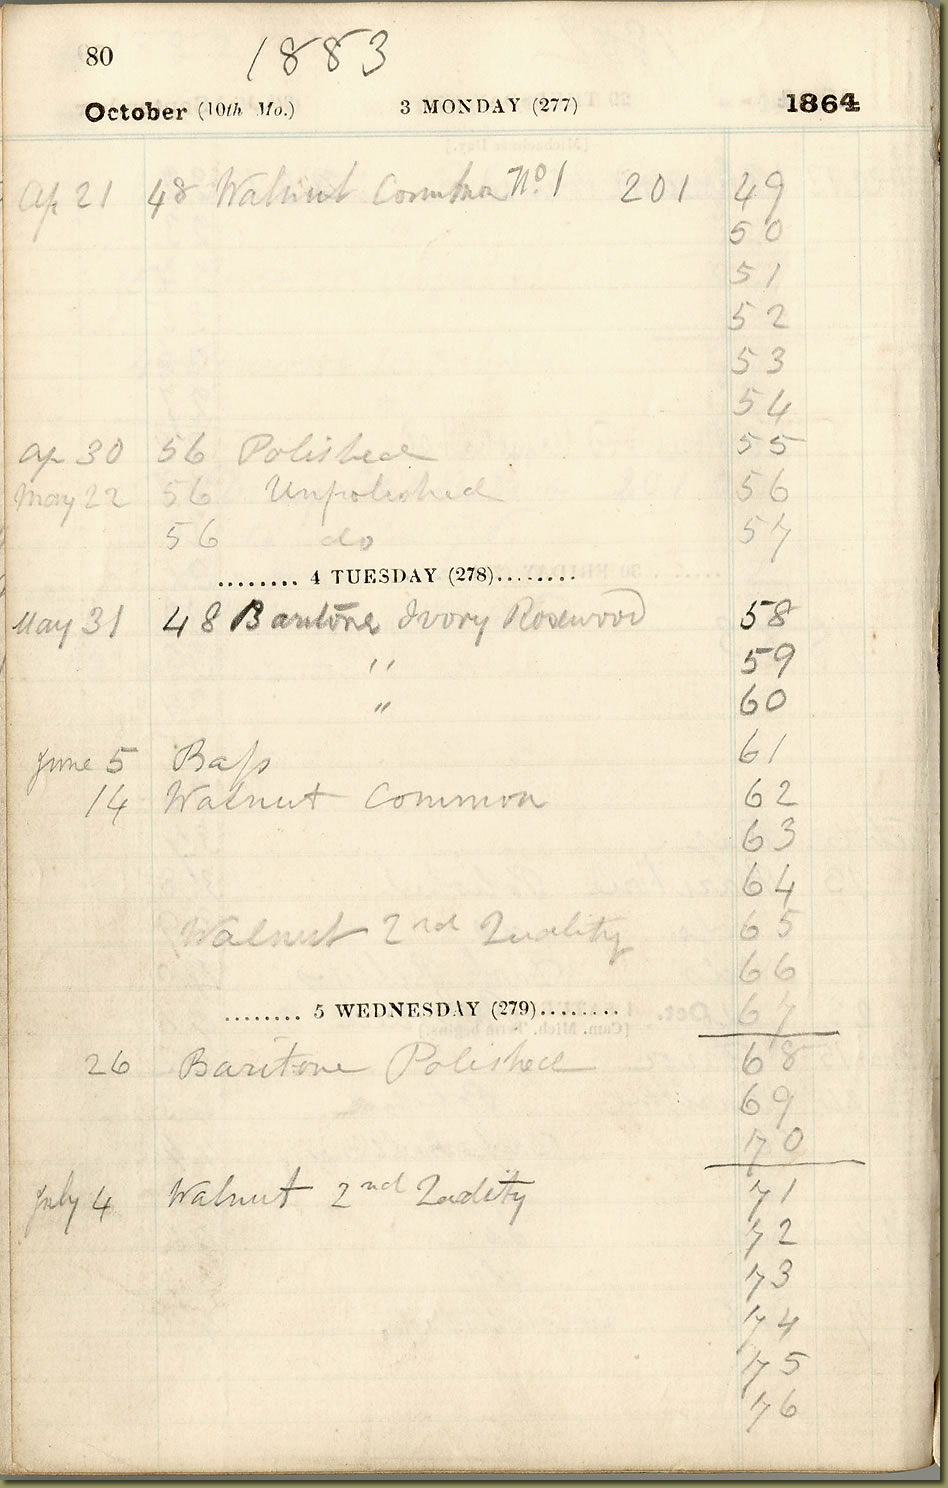 80 1883
October (10th Mo.) 3 MONDAY (277) 1864
Ap 21 48 Walnut Common No. 1 201 49
50
51
52
53
54
Ap 30 56 Polished 55
May 22 56 Unpolished 56
56 do 57
........ 4 TUESDAY (278)........
May 31 48 Baritone Ivory Rosewood 58
" 59
" 60
June 5 Bass 61
14 Walnut Common 62
63
64
Walnut 2nd Quality 65
66
........ 5 WEDNESDAY (279)........ 67
26 Baritone Polished 68
69
70
July 4 Walnut 2nd Quality 71
72
73
74
75
76